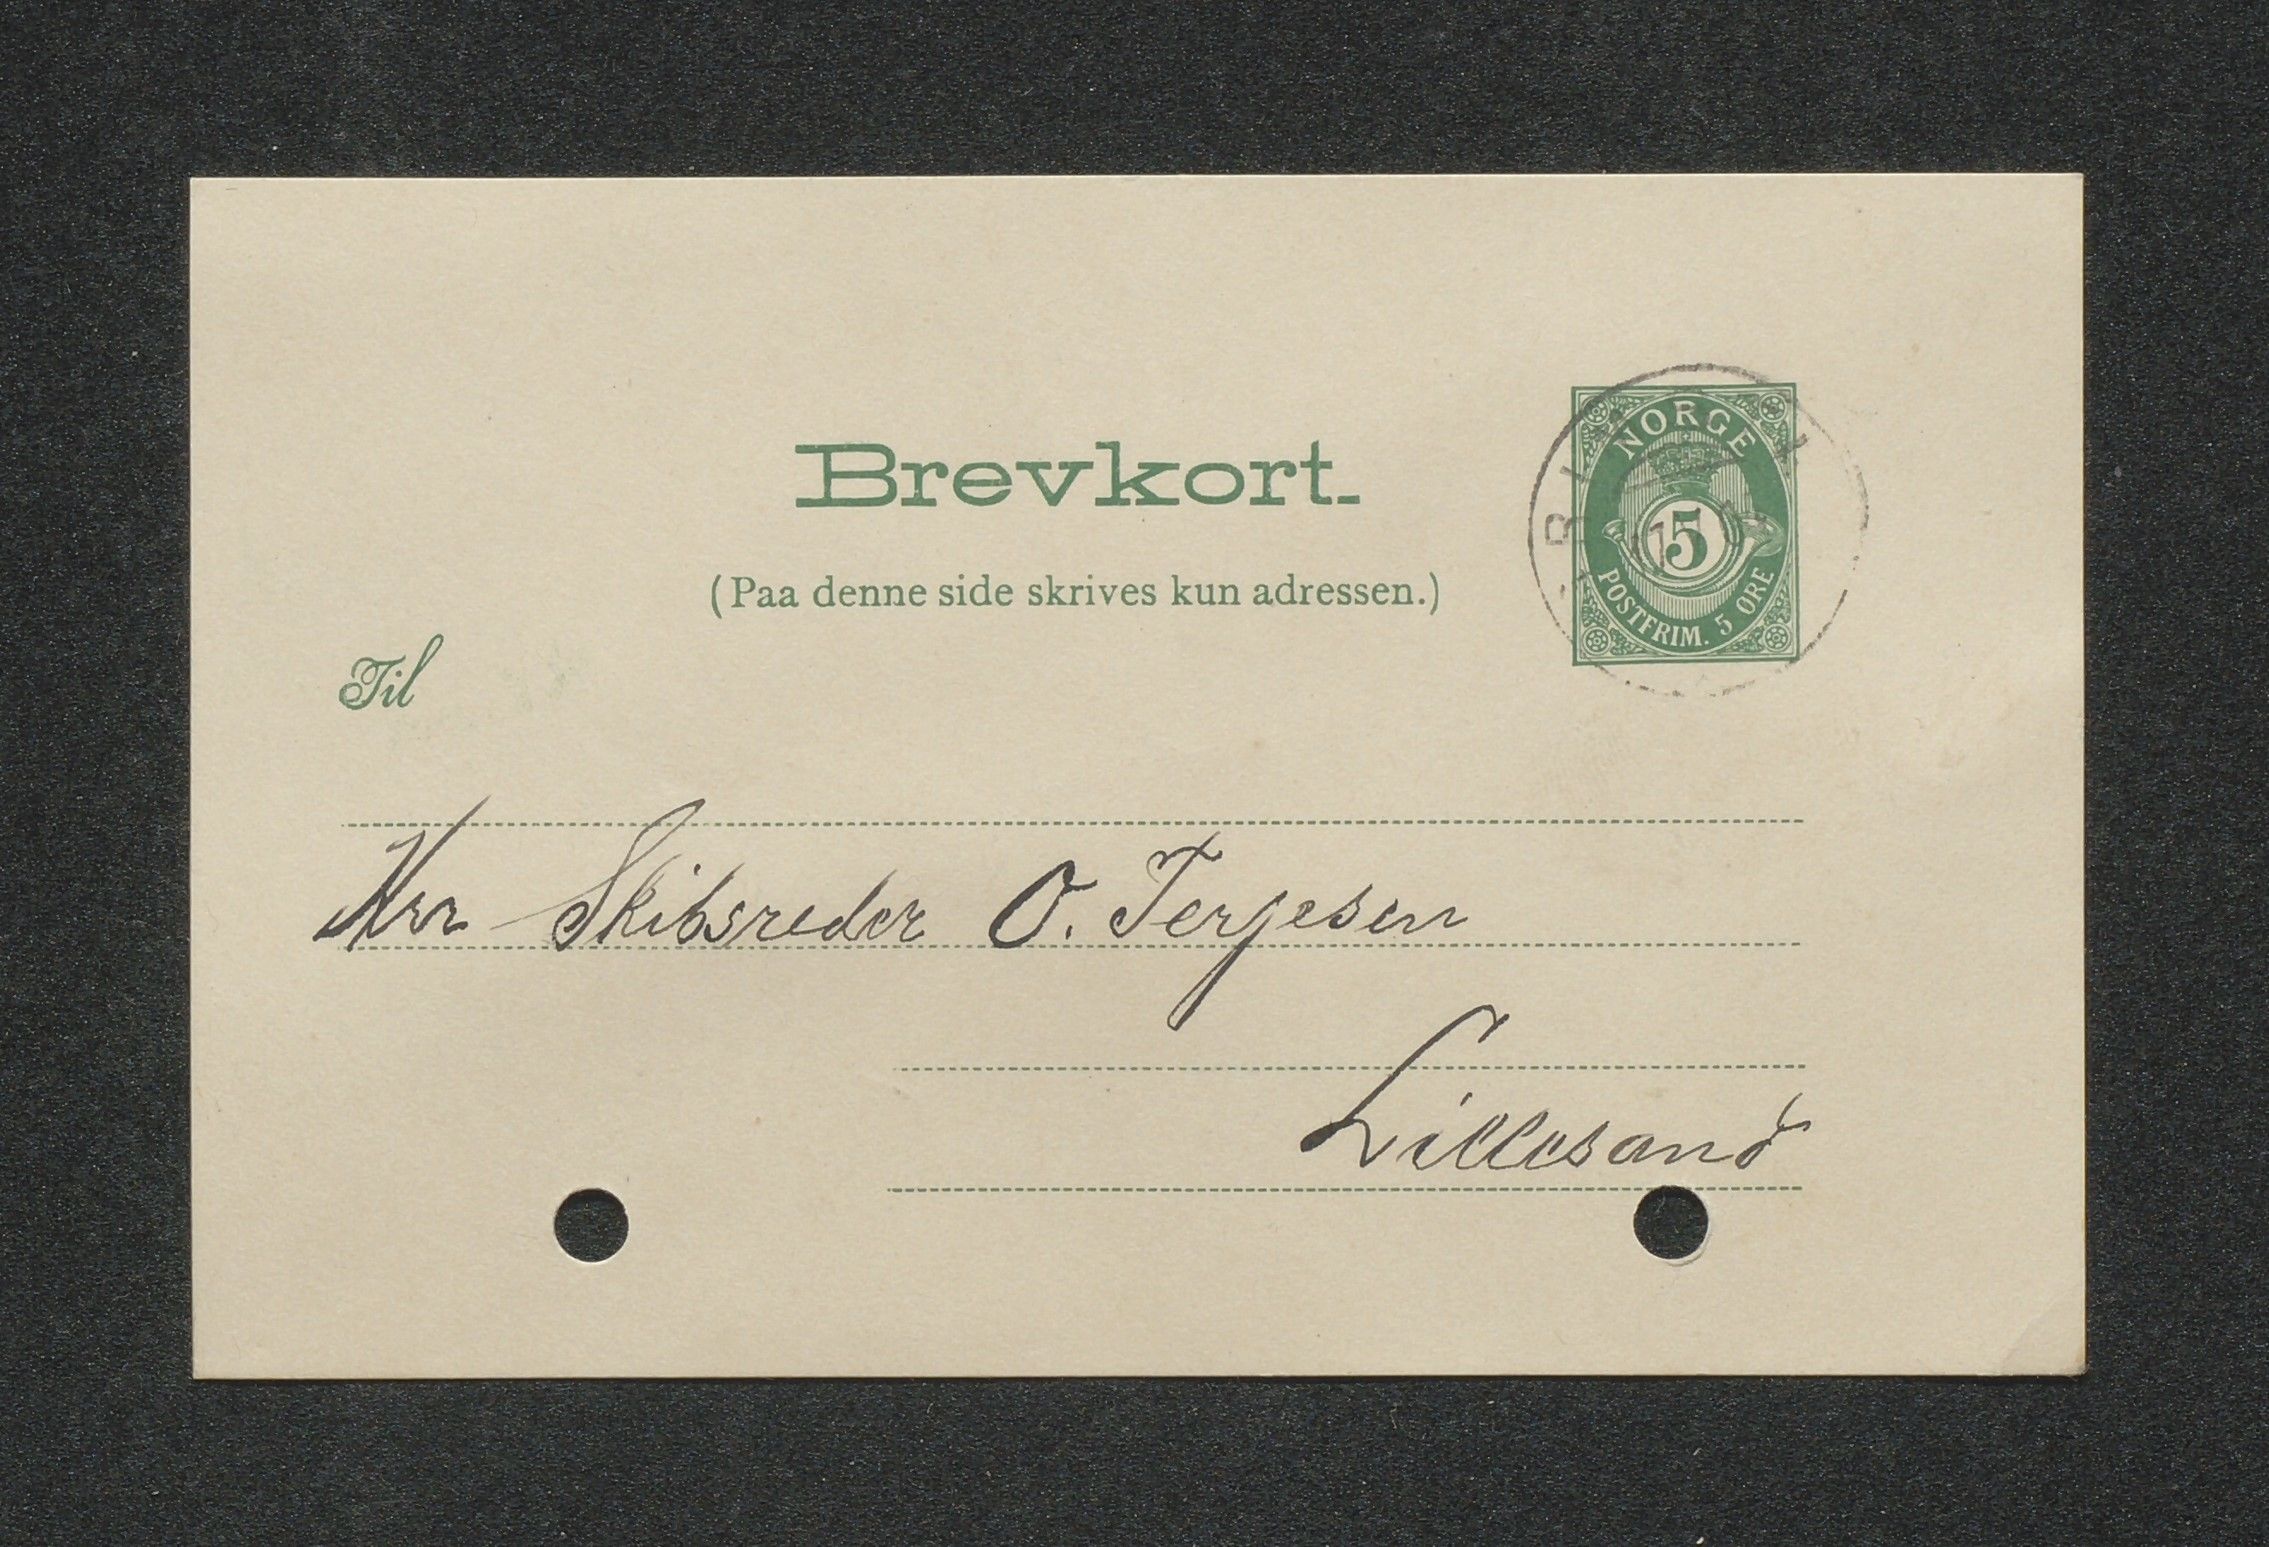 Brevkort.
NORGE
5
POSTFRIM. 5 ØRE
(Paa denne side skrives kun adressen.)
Til
Herr Skibsreder O. Terjesen
Lillesand